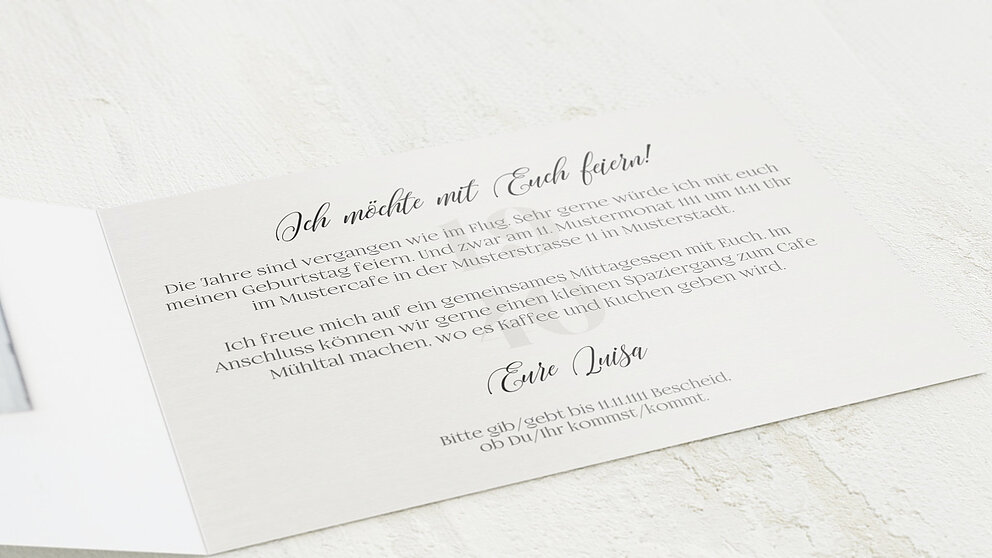 Ich möchte mit Euch feiern!
Die Jahre sind vergangen wie im Flug. Sehr gerne würde ich mit euch
meinen Geburtstag feiern. Und zwar am 11. Mustermonat 1111 um 11:11 Uhr
im Mustercafe in der Musterstrasse 11 in Musterstadt.
Ich freue mich auf ein gemeinsames Mittagessen mit Euch. Im
Anschluss können wir gerne einen kleinen Spaziergang zum Cafe
Mühltal machen, wo es Kaffee und Kuchen geben wird.
Eure Luisa
Bitte gib/gebt bis 11.11.1111 Bescheid,
ob Du/Ihr kommst/kommt.